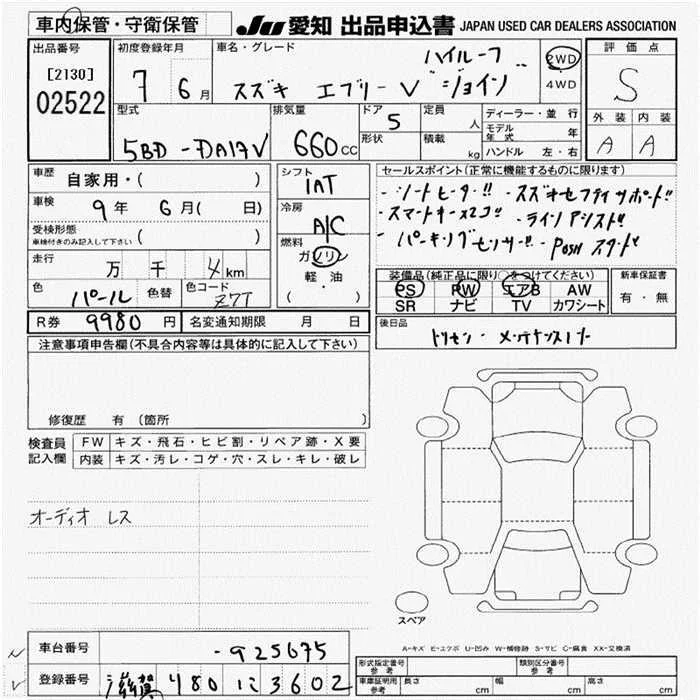 車内保管・守衛保管
JU 愛知 出品申込書 JAPAN USED CAR DEALERS ASSOCIATION
出品番号
[2130]
02522
初度登録年月
7 6月
車名・グレード
ハイルーフ
スズキ エブリー V ジョイン
2WD
4WD
評価点
S
外装 内装
A A
型式
5BD-DA17V
排気量
660cc
ドア 5
形状
定員 人
積載 kg
ディーラー・並行
モデル年式 年
ハンドル 左・右
車歴 自家用・( )
車検 9年 6月( 日)
受検形態
車検付きのみ記入して下さい ( )
走行 万 千 4km
色 パール 色替 色コード Z7T
シフト
IAT
冷房
A/C
燃料
ガソリン
軽・油
( )
セールスポイント(正常に機能するものに限ります)
・シートヒーター!! ・スズキセフティサポート!!
・スマートキーx2コ!! ・ラインアシスト!!
・パーキングセンサー!! ・Posh スタート
装備品(純正品に限り○をつけてください)
PS PW エアB AW
SR ナビ TV カワシート
新車保証書
有・無
R券 9980円 名変通知期限 月 日
後日品
トリセツ・メンテナンスノート
注意事項申告欄(不具合内容等は具体的に記入して下さい)
修復歴 有(箇所 )
検査員記入欄
FW キズ・飛石・ヒビ割・リペア跡・X要
内装 キズ・汚レ・コゲ・穴・スレ・キレ・破レ
オーディオ レス
スペア
A-キズ E-エクボ U-凹み W-補修跡 S-サビ C-腐食 XX-交換済
車台番号 -925675
登録番号 滋賀 480 に 3602
形式指定番号 参考
類別区分番号 参考
車庫証明用 参考 長さ cm 幅 cm 高さ cm